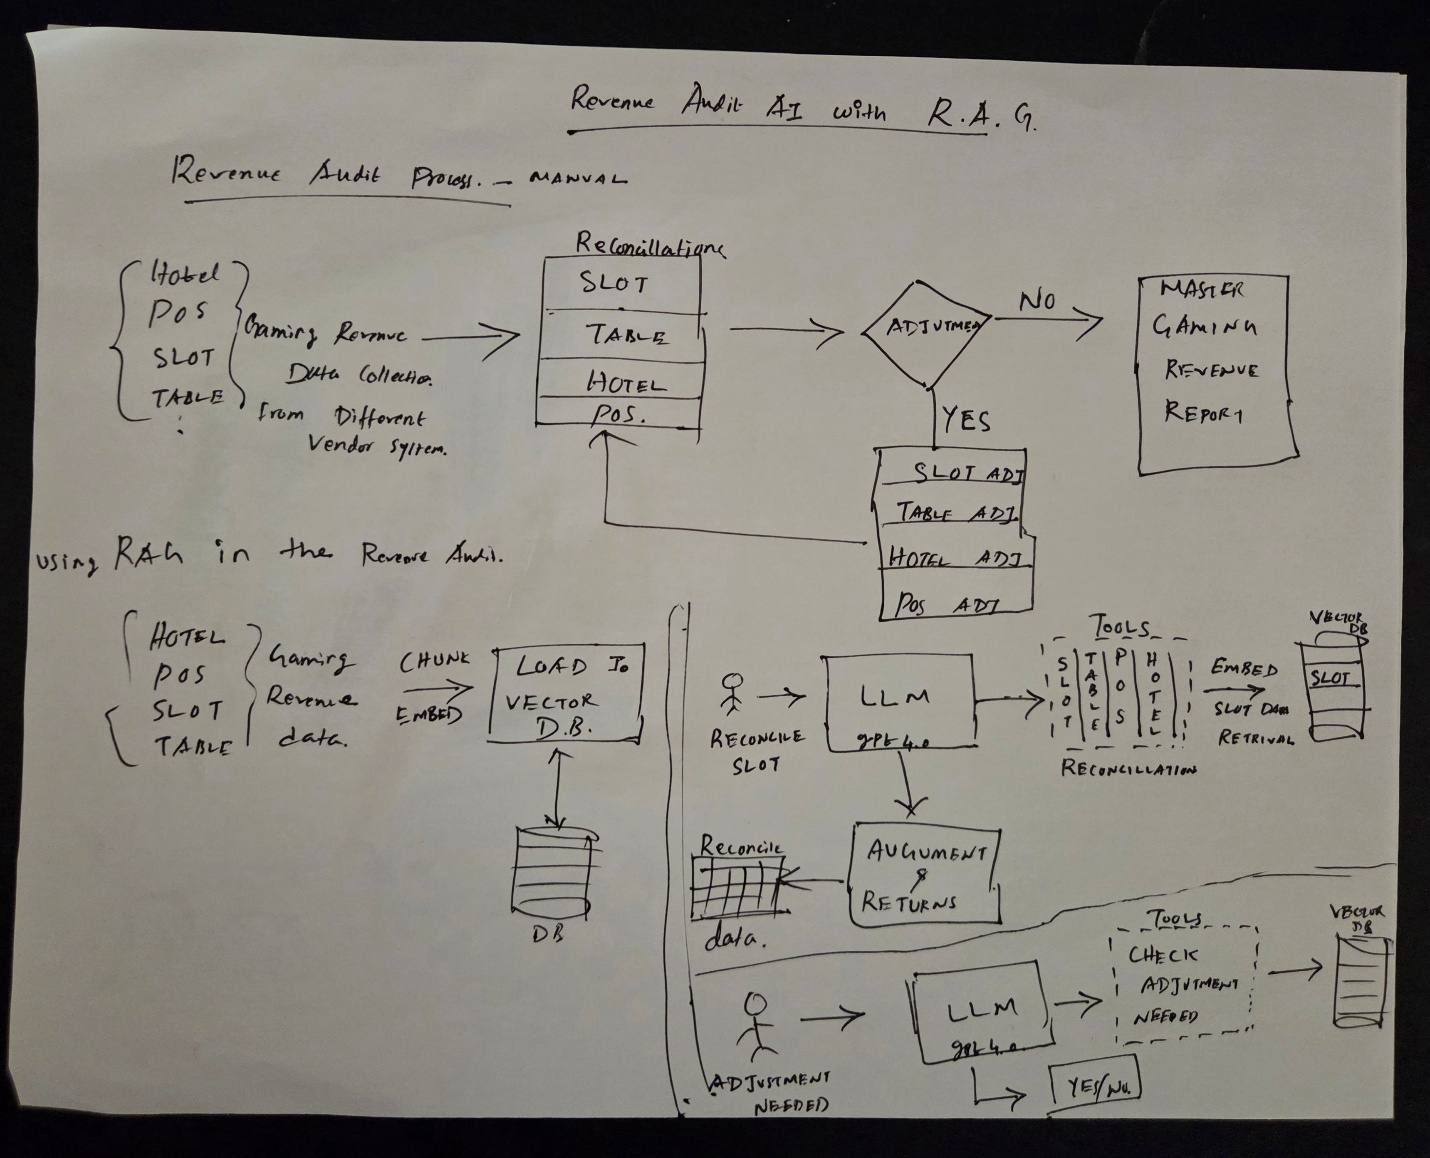 Revenue Audit AI with R.A.G.
Revenue Audit Process. - MANUAL
Hotel
POS
SLOT
TABLE
Gaming Revenue
Data Collection
from Different
Vendor System.
Reconcillations
SLOT
TABLE
HOTEL
POS.
ADJUTMEN
NO
YES
MASTER
GAMING
REVENUE
REPORT
SLOT ADJ
TABLE ADJ.
HOTEL ADJ
POS ADJ
using RAG in the Revenue Audit.
HOTEL
POS
SLOT
TABLE
Gaming
Revenue
data.
CHUNK
EMBED
LOAD To
VECTOR
D.B.
DB
RECONCILE
SLOT
LLM
gpt 4.0
TOOLS
SLOT
TABLE
POS
HOTEL
RECONCILLATION
EMBED
SLOT DATA
RETRIVAL
VECTOR
DB
SLOT
AUGUMENT
&
RETURNS
Reconcile
data.
ADJUSTMENT
NEEDED
LLM
gpt 4.0
YES/NO.
TOOLS
CHECK
ADJUTMENT
NEEDED
VECTOR
DB